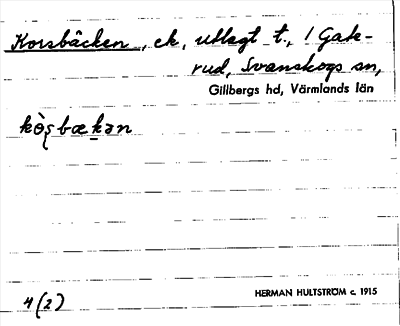 Korsbäcken, ek, utlagt t., 1 Gate-
rud, Svanskogs sn,
Gillbergs hd, Värmlands län
kòʂbækən
4(2)
HERMAN HULTSTRÖM c. 1915